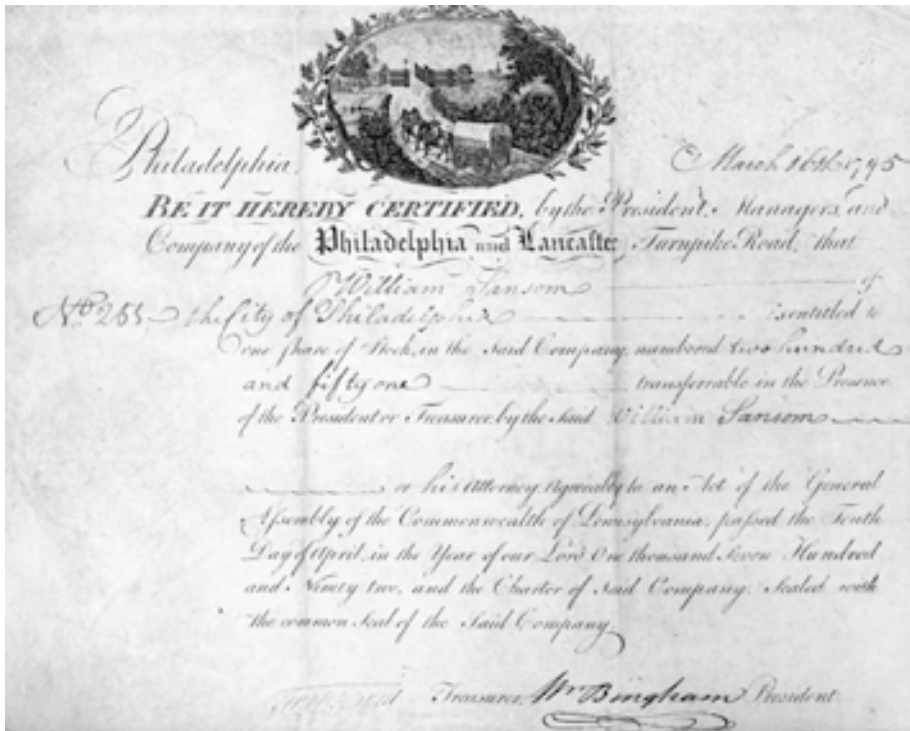 Philadelphia. March 16th 1795
BE IT HEREBY CERTIFIED, by the President, Managers, and
Company of the Philadelphia and Lancaster Turnpike Road, that
William Sansom of
No. the City of Philadelphia is entitled to
one share of Stock, in the Said Company, numbered two hundred
and fifty one transferrable in the Presence
of the President or Treasurer, by the Said William Sansom
or his Attorney. Agreeably to an Act of the General
Assembly of the Commonwealth of Pennsylvania, passed the Ninth
Day of April, in the Year of our Lord One thousand Seven Hundred
and Ninety two, and the Charter of Said Company. Sealed with
the common Seal of the Said Company.
Treasurer. Wm Bingham President.